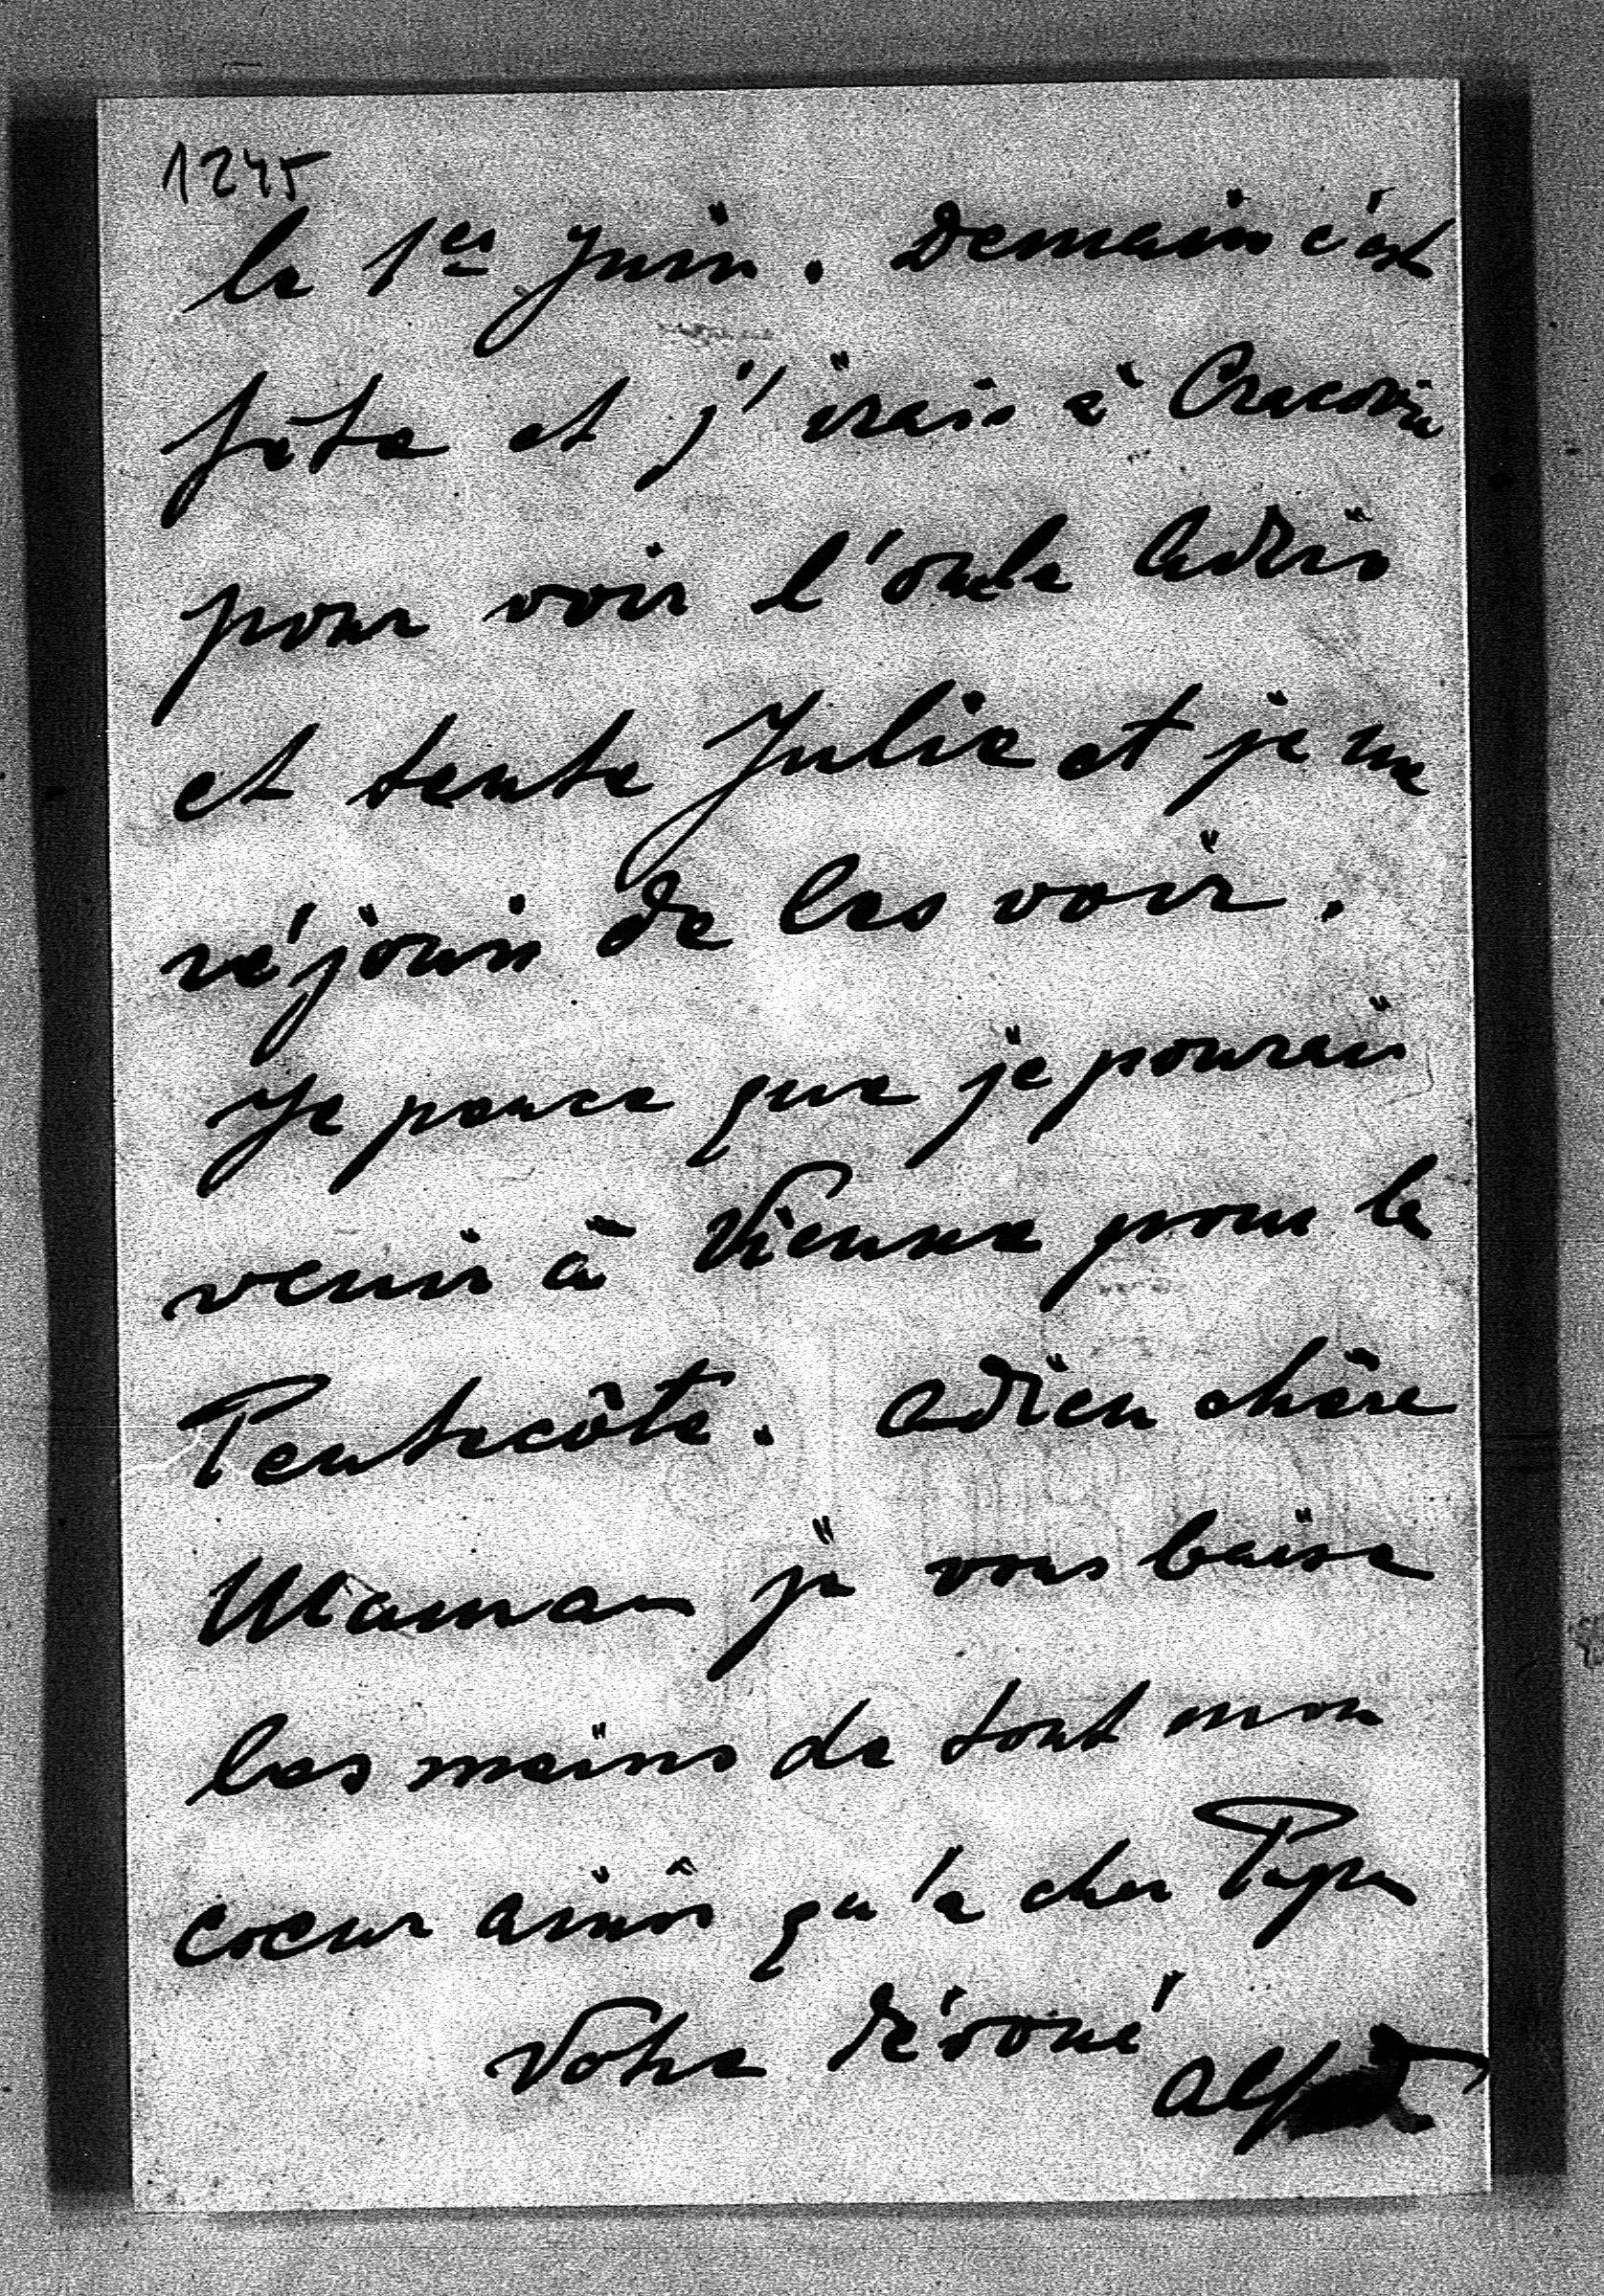 1245
le 1er Juin. Demain c'est
fête et j'irais à Cracovie
pour voir l'oncle Adzio
et tante Julie et je me
réjouis de les voir.
Je pence que je pourais
venir à Vienne pour la
Pentecôte. Adieu chère
Maman je vous baise
les mains de tout mon
coeur ainsi qu'à cher Papa
Votre dévoué
Alfred